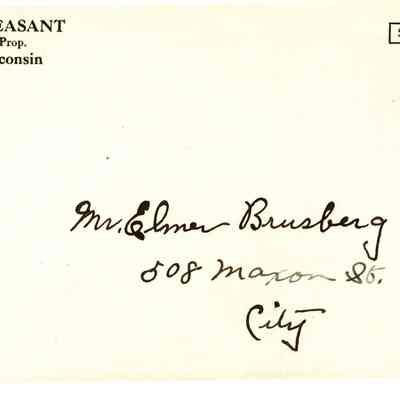 EASANT
Prop.
consin
Mr. Elmer Brusberg
508 Maxon St.
City